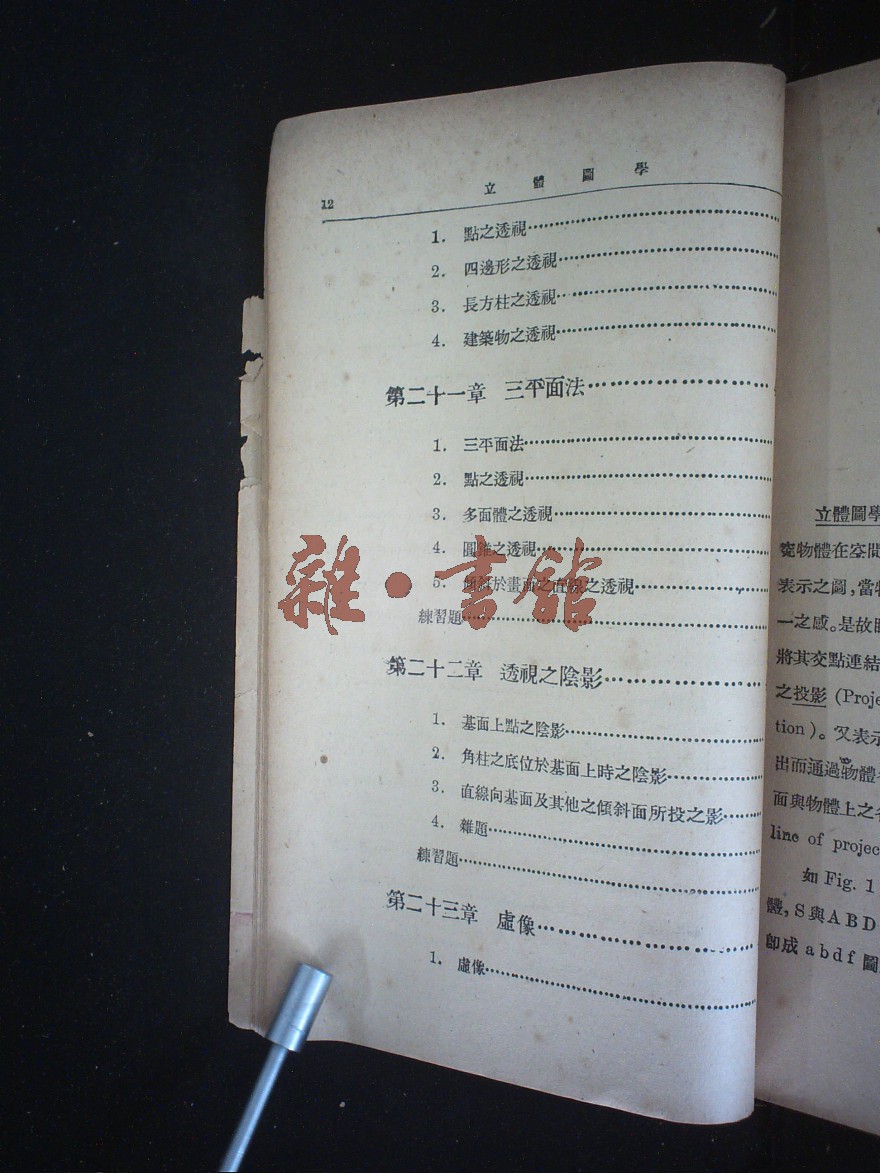 12
立體圖學
1. 點之透視
2. 四邊形之透視
3. 長方柱之透視
4. 建築物之透視
第二十一章 三平面法
1. 三平面法
2. 點之透視
3. 多面體之透視
4. 圓錐之透視
5. 傾斜於畫面之直線之透視
練習題
第二十二章 透視之陰影
1. 基面上點之陰影
2. 角柱之底位於基面上時之陰影
3. 直線向基面及其他之傾斜面所投之影
4. 雜題
練習題
第二十三章 虛像
1. 虛像
雜·書館
立體圖學
物體在空間
表示之圖,當
一之感。是故
將其交點連結
之投影 (Proje
tion)。又表示
出而通過物體
面與物體上之
line of projec
如 Fig. 1
體, S與ABD
卽成 abdf 圖